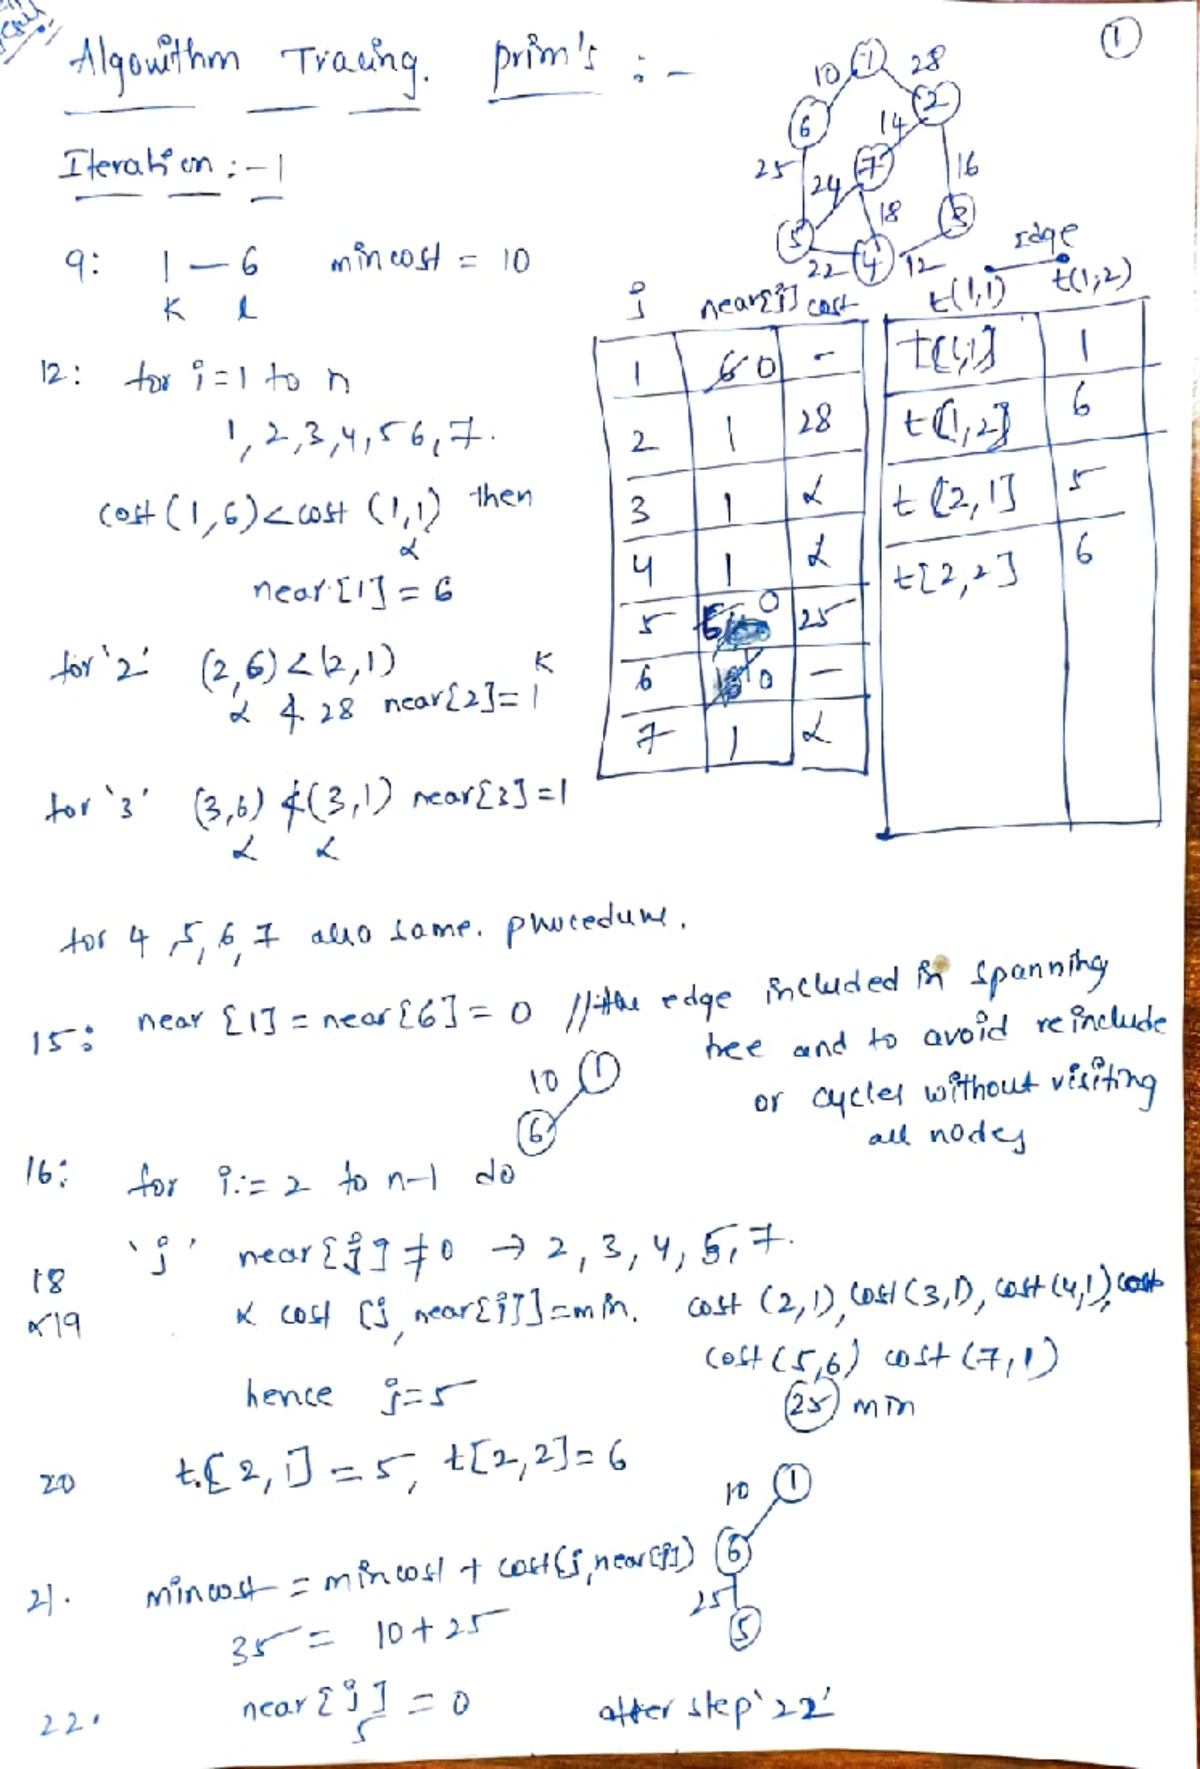 Algorithm Tracing. prim's :-
1
Iteration :-1
1
10
28
6
2
14
25
7
16
24
18
3
5
22
4
12
9: 1 — 6 mincost = 10
K l
Edge
j near[j] cost t(1,1) t(1,2)
1 6 0 - t[1,1] 1
2 1 28 t[1,2] 6
3 1 α t[2,1] 5
4 1 α t[2,2] 6
5 6 0 25
6 0 —
7 1 α
12: for i=1 to n
1, 2, 3, 4, 5 6, 7.
cost (1,6) < cost (1,1) then
α
near[1] = 6
for '2' (2,6) < (2,1) K
α ≮ 28 near[2] = 1
for '3' (3,6) ≮ (3,1) near[3] = 1
α α
for 4, 5, 6, 7 also same. procedure.
15: near [1] = near[6] = 0 // the edge included in spanning
tree and to avoid reinclude
or cycles without visiting
all nodes
10 1
6
16: for i:= 2 to n-1 do
18 'j' near[j] ≠ 0 → 2, 3, 4, 5, 7.
&19 & cost [j, near[j]] = min. cost (2,1), cost (3,1), cost (4,1), cost
cost (5,6) cost (7,1)
hence j=5 25 min
20 t[2,1] = 5, t[2,2] = 6
10 1
6
25
5
21. mincost = mincost + cost[j, near[j])
35 = 10 + 25
22. near[j] = 0 after step '22'
5